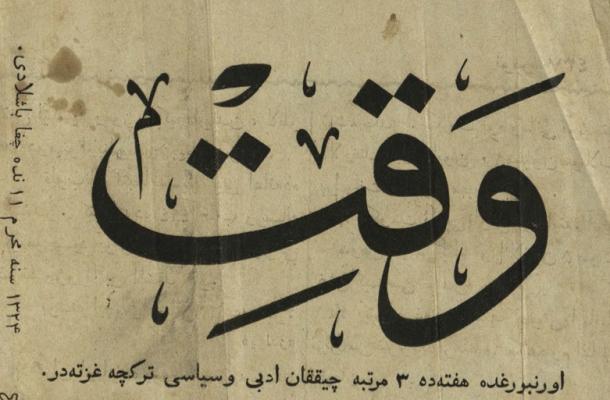 وقت
اورنبورغده هفته‌ده ۳ مرتبه چیققان ادبی وسیاسی ترکچه غزته‌در.
۱۳۲۴ سنه محرم ۱۱ نده چقا باشلادی.